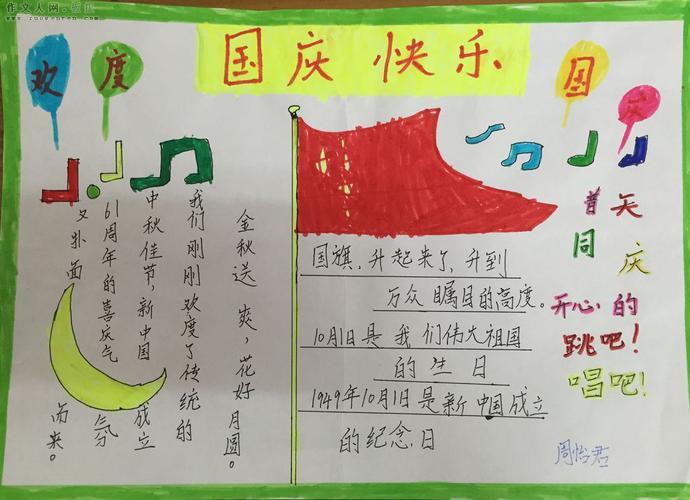 作文人网
国庆快乐
欢度
国庆
金秋送爽，花好月圆。
我们刚刚欢度了传统的
中秋佳节，新中国成立
61周年的喜庆气氛
又扑面而来。
国旗，升起来了，升到
万众瞩目的高度。
10月1日是我们伟大祖国
的生日
1949年10月1日是新中国成立
的纪念日
普天
同庆
开心的
跳吧！
唱吧！
周怡君